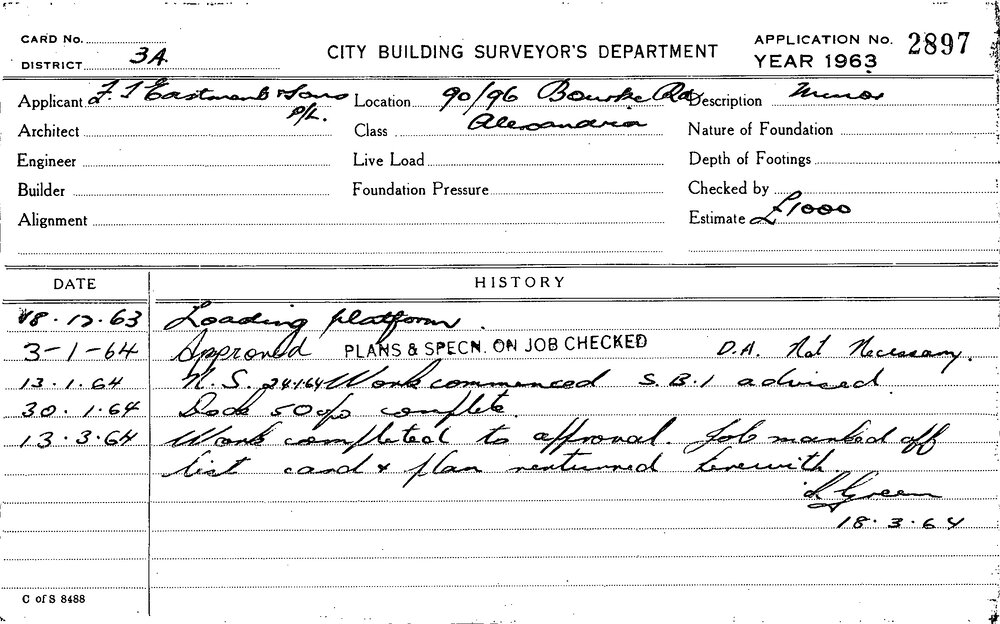 CARD No.
DISTRICT 3A
CITY BUILDING SURVEYOR'S DEPARTMENT
APPLICATION No. 2897
YEAR 1963
Applicant F. T Eastment & Sons P/L.
Location 90/96 Bourke Rd Alexandria
Description Minor
Architect
Class
Nature of Foundation
Engineer
Live Load
Depth of Footings
Builder
Foundation Pressure
Checked by
Alignment
Estimate £1000
DATE HISTORY
18.12.63 Loading platform.
3-1-64 Approved PLANS & SPECN. ON JOB CHECKED D.A. Not Necessary.
13.1.64 N.S. 24.1.64 Work commenced S.B.1 advised
30.1.64 Dock 50% complete.
13.3.64 Work completed to approval. Job marked off
list card & plan returned herewith.
L Green
18.3.64
C of S 8488